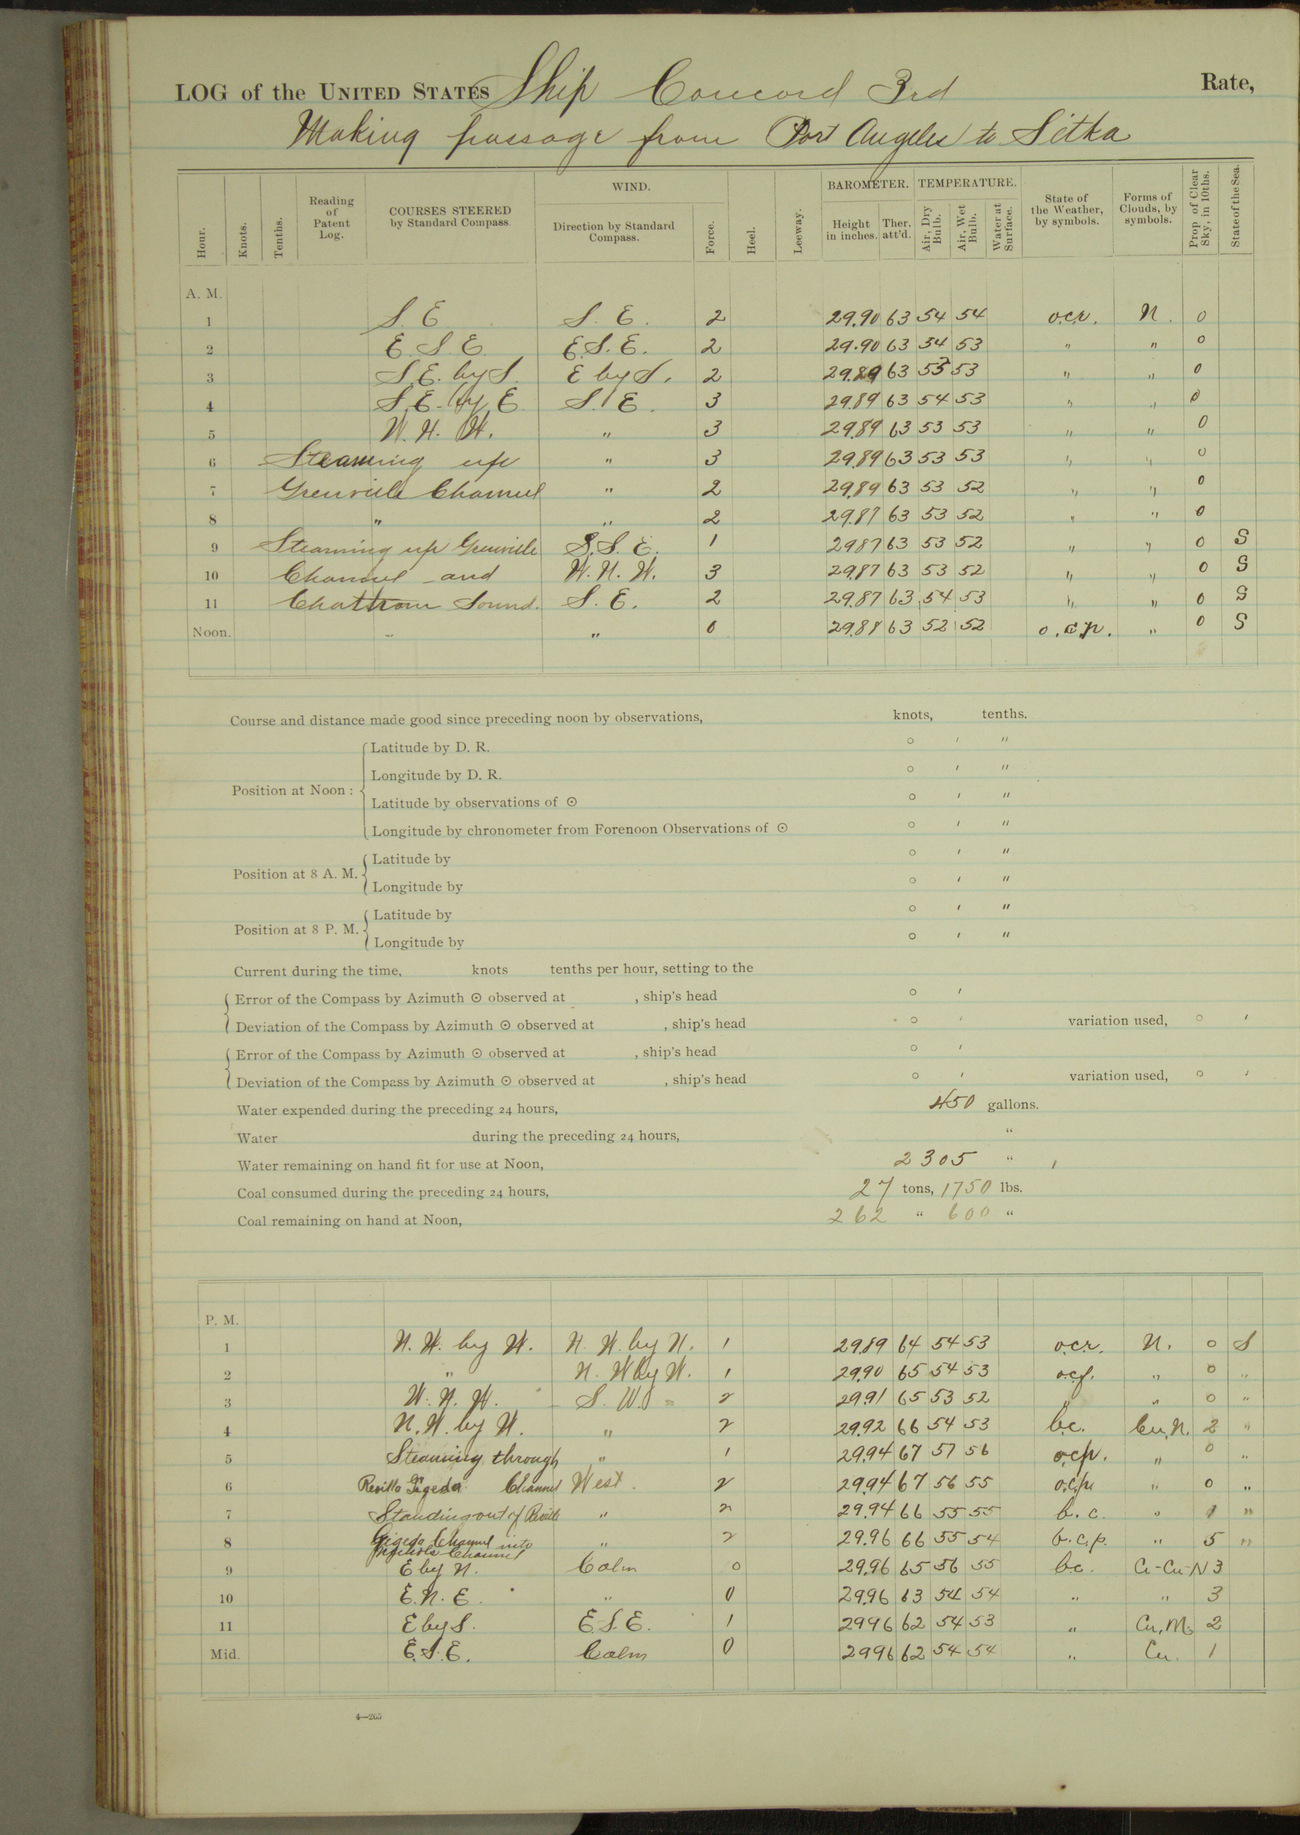 LOG of the UNITED STATES Ship Concord 3rd Rate,
Making passage from Port Angeles to Sitka
Hour. Knots. Tenths. Reading of Patent Log. COURSES STEERED by Standard Compass. WIND. Direction by Standard Compass. Force. Heel. Leeway. BAROMETER. Height in inches. Ther. att'd. TEMPERATURE. Air, Dry Bulb. Air, Wet Bulb. Water at Surface. State of the Weather, by symbols. Forms of Clouds, by symbols. Prop. of Clear Sky, in 10ths. State of the Sea.
A. M.
1 S. E S. E. 2 29.90 63 54 54 o.c.r. N. 0
2 E. S. E. E.S.E. 2 29.90 63 54 53 " " 0
3 S.E. by S. E by S. 2 29.89 63 53 53 " " 0
4 S.E. by E S. E. 3 29.89 63 54 53 " " 0
5 W. N. W. " 3 29.89 63 53 53 " " 0
6 Steaming up " 3 29.89 63 53 53 " " 0
7 Grenville Channel " 2 29.89 63 53 52 " " 0
8 " " 2 29.87 63 53 52 " " 0
9 Steaming up Grenville S.S.E. 1 29.87 63 53 52 " " 0 S
10 Channel and W. N. W. 3 29.87 63 53 52 " " 0 S
11 Chatham Sound. S. E. 2 29.87 63 54 53 " " 0 S
Noon. " " 0 29.88 63 52 52 o.c.p. " 0 S
Course and distance made good since preceding noon by observations, knots, tenths.
Position at Noon: Latitude by D. R. ° ′ ″
Longitude by D. R. ° ′ ″
Latitude by observations of ☉ ° ′ ″
Longitude by chronometer from Forenoon Observations of ☉ ° ′ ″
Position at 8 A. M. Latitude by ° ′ ″
Longitude by ° ′ ″
Position at 8 P. M. Latitude by ° ′ ″
Longitude by ° ′ ″
Current during the time, knots tenths per hour, setting to the
Error of the Compass by Azimuth ☉ observed at , ship's head ° ′
Deviation of the Compass by Azimuth ☉ observed at , ship's head ° ′ variation used, ° ′
Error of the Compass by Azimuth ☉ observed at , ship's head ° ′
Deviation of the Compass by Azimuth ☉ observed at , ship's head ° ′ variation used, ° ′
Water expended during the preceding 24 hours, 450 gallons.
Water during the preceding 24 hours, "
Water remaining on hand fit for use at Noon, 2305 "
Coal consumed during the preceding 24 hours, 27 tons, 1750 lbs.
Coal remaining on hand at Noon, 262 " 600 "
P. M.
1 N. W. by W. N. W. by N. 1 29.89 64 54 53 o.c.r. N. 0 S
2 " N. W by W. 1 29.90 65 54 53 o.c.f. " 0 "
3 W. N. W. S. W. 2 29.91 65 53 52 " " 0 "
4 N. W. by W. " 2 29.92 66 54 53 b.c. Cu, N. 2 "
5 Steaming through " 1 29.94 67 57 56 o.c.p. " 0 "
6 Revilla Gigeda Channel West. 2 29.94 67 56 55 o.c.p. " 0 "
7 Standing out of Revilla " 2 29.94 66 55 55 b. c. " 1 "
8 Gigeda Channel into " 2 29.96 66 55 54 b.c.p. " 5 "
Nichols Channel
9 E by N. Calm 0 29.96 65 56 55 b.c. Ci-Cu-N 3
10 E. N. E. " 0 29.96 63 54 54 " " 3
11 E by S. E.S.E. 1 29.96 62 54 53 " Cu, N. 2
Mid. E.S.E. Calm 0 29.96 62 54 54 " Cu. 1
4—265